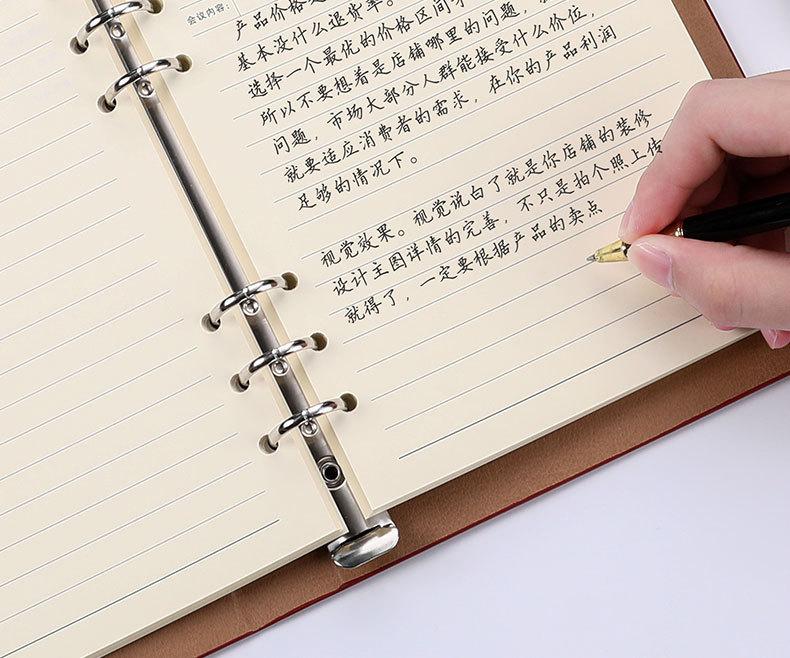 会议内容：
产品价格
基本没什么退货率。
选择一个最优的价格区间
所以不要想着是店铺哪里的问题，
问题，市场大部分人群能接受什么价位，
就要适应消费者的需求，在你的产品利润
足够的情况下。
视觉效果。视觉说白了就是你店铺的装修
设计主图详情的完善，不只是拍个照上传
就得了，一定要根据产品的卖点